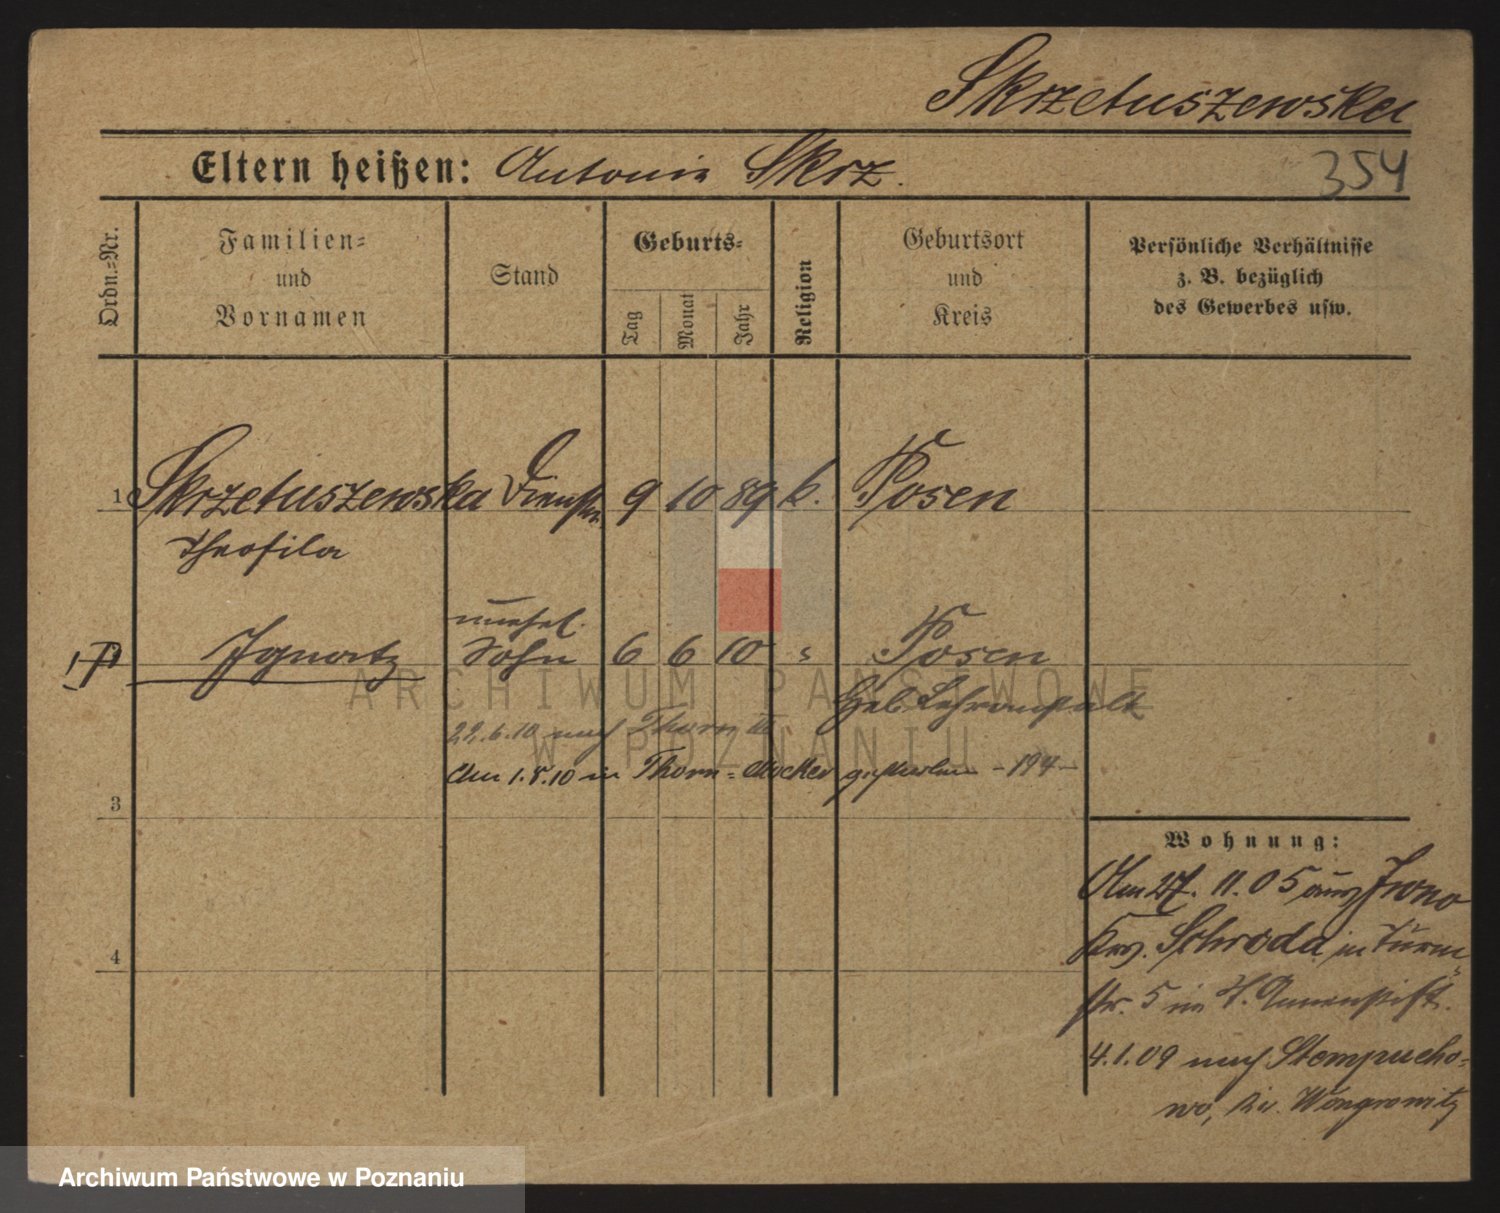 Skrzetuszewska
Eltern heißen: Antonie Skrz.
354
Ordn.-Nr.
Familien-
und
Vornamen
Stand
Geburts-
Tag
Monat
Jahr
Religion
Geburtsort
und
Kreis
Persönliche Verhältnisse
z. B. bezüglich
des Gewerbes usw.
1 Skrzetuszewska Dienstm. 9 10 89 k. Posen
Theofila
unehel.
Ignatz Sohn 6 6 10 " Posen
Heb. Lehranstalt
22.6.10 nach Thorn III
Am 1.8.10 in Thorn-Mocker gestorben - 194 -
3
4
Wohnung:
Am 27. 11. 05 aus Iwno
Krs. Schroda in Turm-
str. 5 im St. Annenstift.
4.1.09 nach Stempucho-
wo, Kr. Wongrowitz
ARCHIWUM PAŃSTWOWE
W POZNANIU
Archiwum Państwowe w Poznaniu